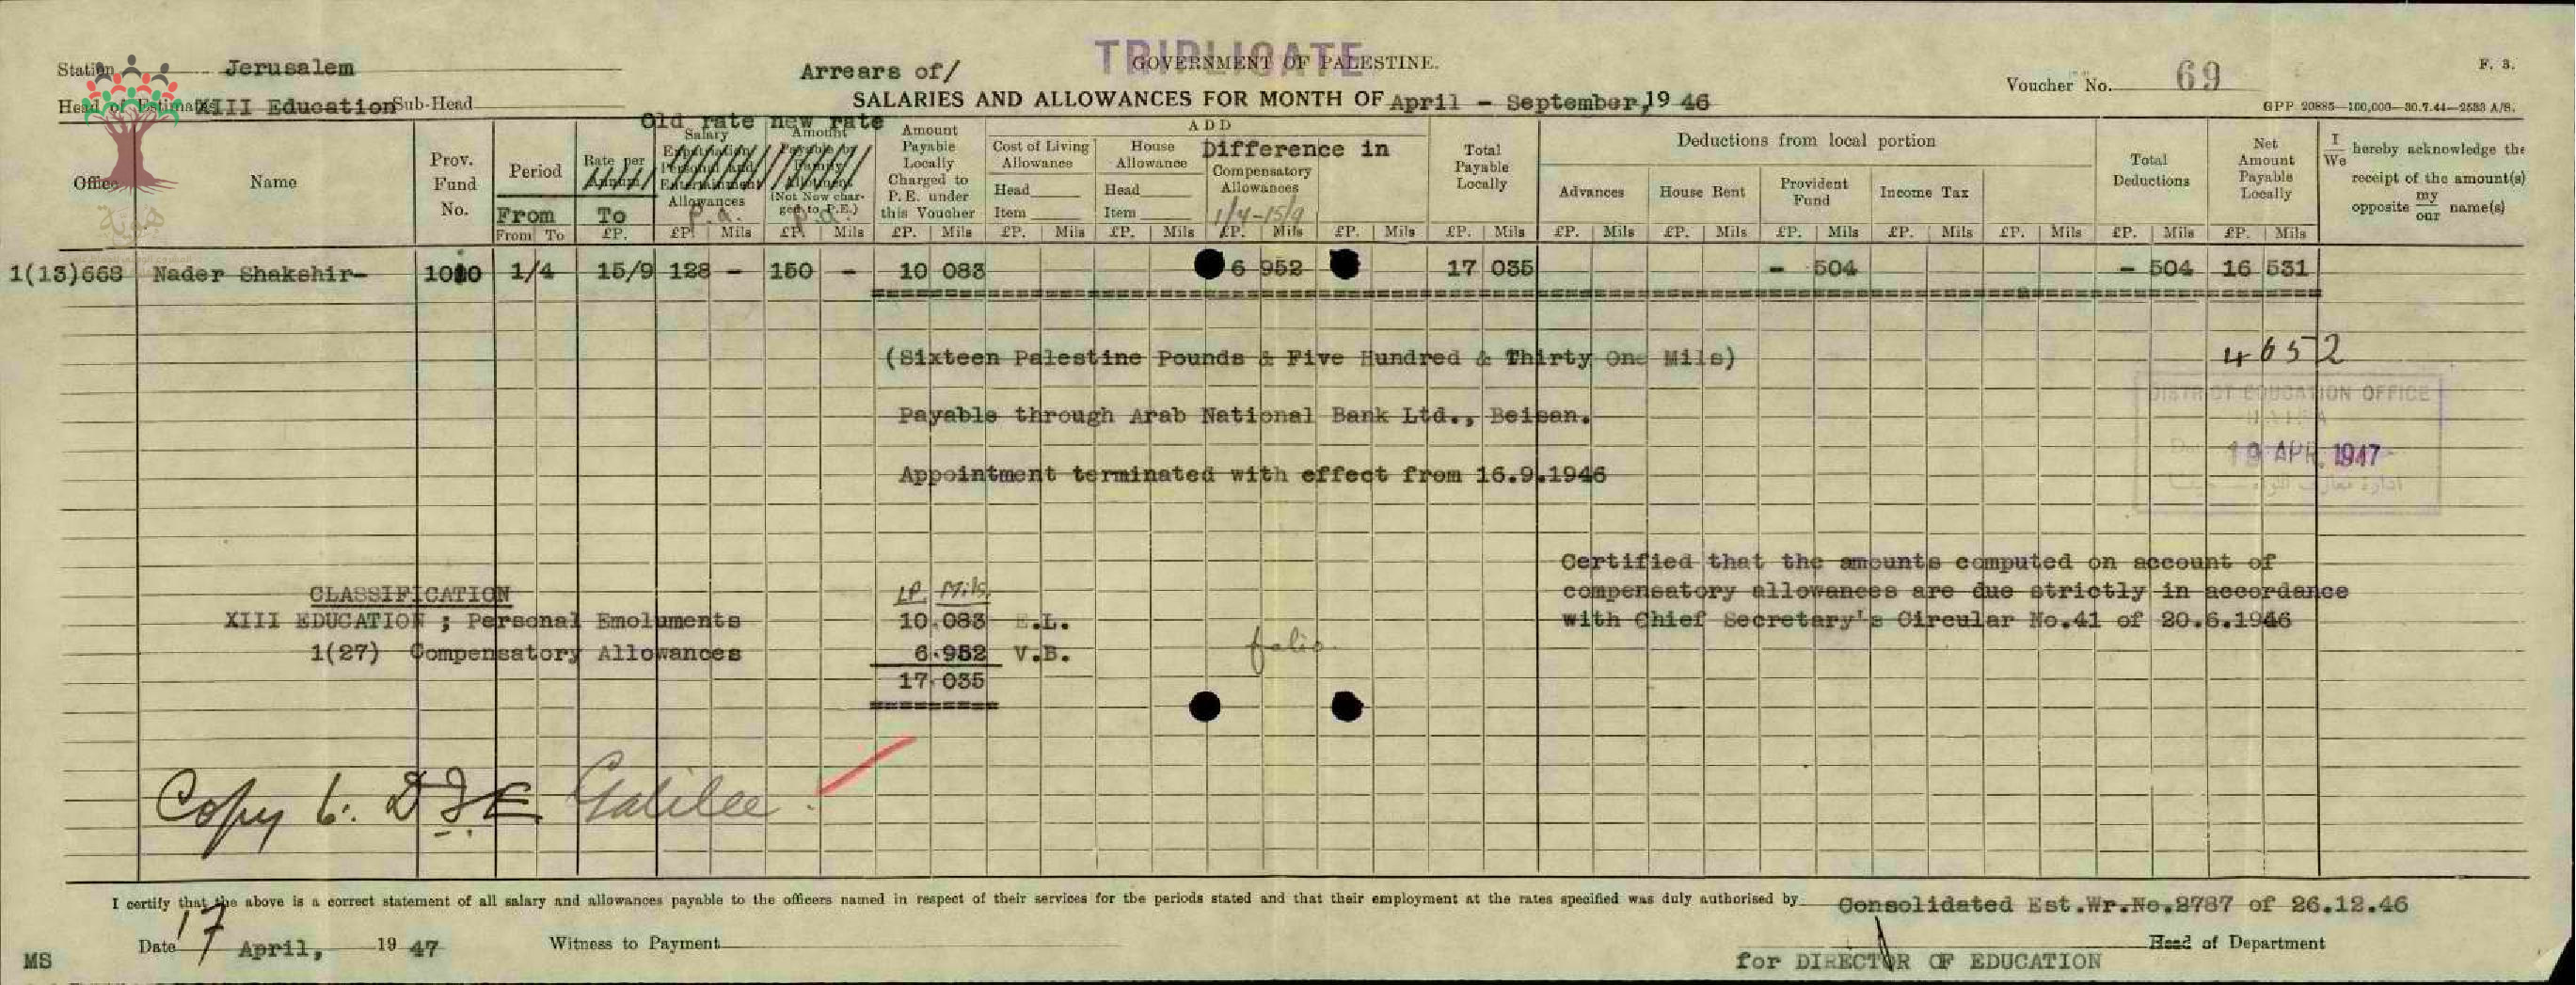 TRIPLICATE
Station Jerusalem
Arrears of/
GOVERNMENT OF PALESTINE.
Voucher No. 69
F. 3.
Head of Estimates XIII Education Sub-Head
SALARIES AND ALLOWANCES FOR MONTH OF April - September, 19 46
GPP 20885—100,000—30.7.44—2533 A/S.
Old rate new rate
Office
Name
Prov. Fund No.
Period
From
From To
Rate per Annum
To
£P.
Salary
Expatriation
Personal and
Entertainment
Allowances
p.a.
£P. Mils
Amount
Payable by
Family
Allotment
(Not Now char-
ged to P.E.)
p.a.
£P. Mils
Amount
Payable
Locally
Charged to
P.E. under
this Voucher
£P. Mils
ADD
Cost of Living
Allowance
Head
Item
£P. Mils
House
Allowance
Head
Item
£P. Mils
Difference in
Compensatory
Allowances
1/4-15/9
£P. Mils
£P. Mils
Total
Payable
Locally
£P. Mils
Deductions from local portion
Advances
£P. Mils
House Rent
£P. Mils
Provident
Fund
£P. Mils
Income Tax
£P. Mils
£P. Mils
Total
Deductions
£P. Mils
Net
Amount
Payable
Locally
£P. Mils
I
We hereby acknowledge the
receipt of the amount(s)
opposite my
our name(s)
1(13)668 Nader Shakshir- 1010 1/4 15/9 128 - 150 - 10 083 6 952 17 035 - 504 - 504 16 531
(Sixteen Palestine Pounds & Five Hundred & Thirty One Mils)
4652
Payable through Arab National Bank Ltd., Beisan.
DISTRICT EDUCATION OFFICE
HAIFA
19 APR 1947
Appointment terminated with effect from 16.9.1946
Certified that the amounts computed on account of
compensatory allowances are due strictly in accordance
with Chief Secretary's Circular No.41 of 20.6.1946
CLASSIFICATION
LP. Mils.
XIII EDUCATION ; Personal Emoluments 10.083 E.L.
1(27) Compensatory Allowances 6.952 V.B.
17.035
folio
Copy to: D I E Galilee
I certify that the above is a correct statement of all salary and allowances payable to the officers named in respect of their services for the periods stated and that their employment at the rates specified was duly authorised by Consolidated Est.Wr.No.2787 of 26.12.46
Date 17 April, 19 47
Witness to Payment
Head of Department
MS
for DIRECTOR OF EDUCATION